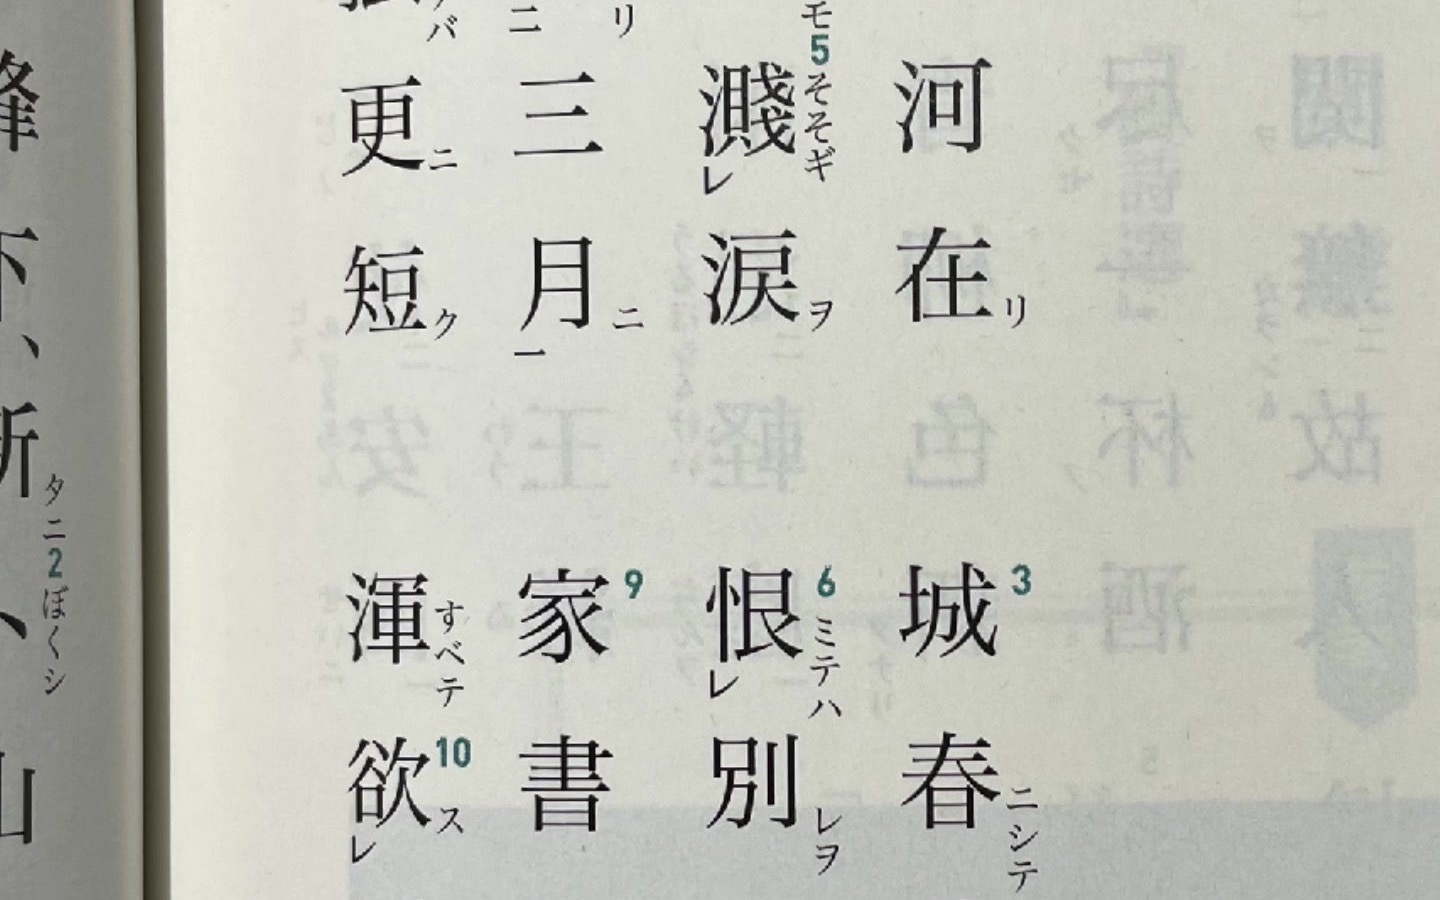 河在リ城3春ニシテ
モ5濺そそギレ涙ヲ恨6ミテハレ別レヲ
ニリ三月ニ一家9書
バ更ニ短ク渾すベテ欲10スレ
峰下、断タニ2ぼくシ、山